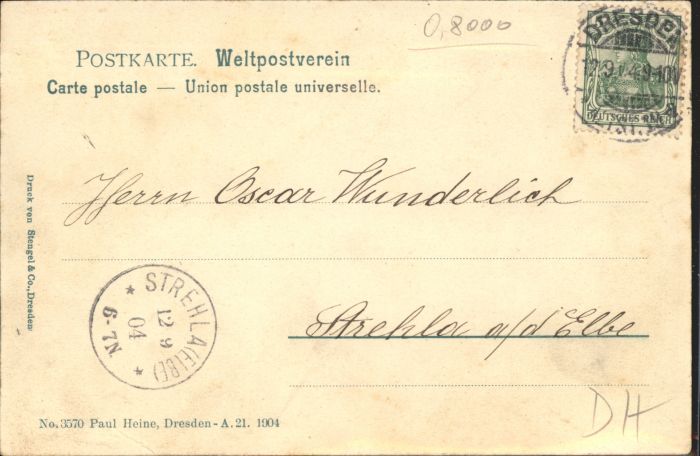 0,8000
DRESDEN
12.9.04.9-10V.
DEUTSCHES REICH
POSTKARTE. Weltpostverein
Carte postale — Union postale universelle.
Herrn Oscar Wunderlich
Strehla a/d Elbe
Druck von Stengel & Co., Dresden
STREHLA (ELBE)
12 9
04
6-7N
DH
No. 3570 Paul Heine, Dresden-A. 21. 1904